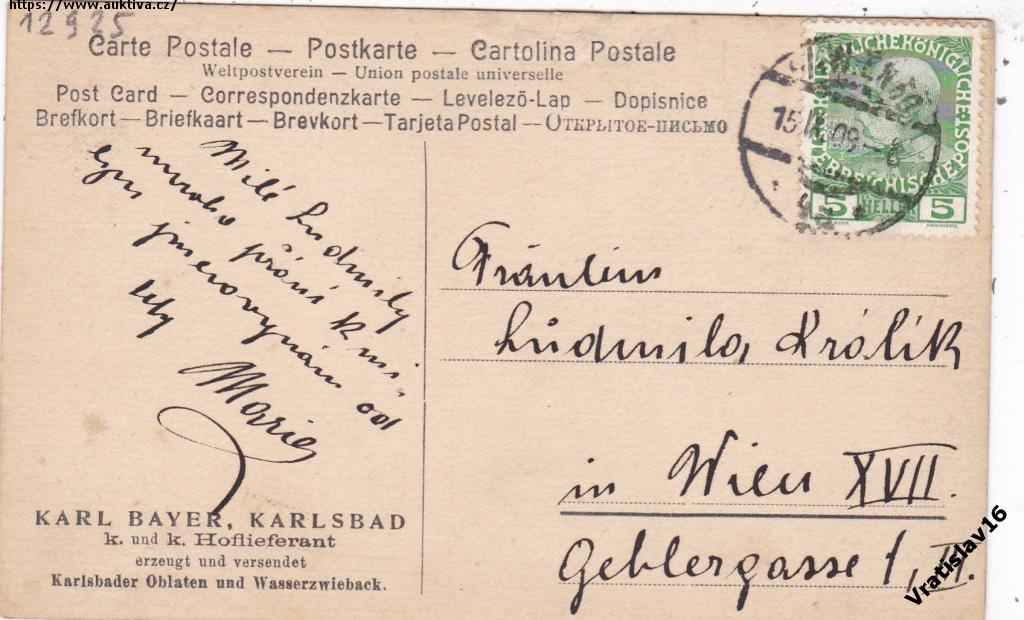 https://www.auktiva.cz/
12925
Carte Postale — Postkarte — Cartolina Postale
Weltpostverein — Union postale universelle
Post Card — Correspondenzkarte — Levelező-Lap — Dopisnice
Brefkort — Briefkaart — Brevkort — Tarjeta Postal — Открытое-письмо
15 IX 09
5 HELLER 5
Milé Ludmily
mnoho přání k
od
Marie
Fräulein
Ludmila Králík
in Wien XVII.
Geblergasse 1, II.
KARL BAYER, KARLSBAD
k. und k. Hoflieferant
erzeugt und versendet
Karlsbader Oblaten und Wasserzwieback.
Vratislav16